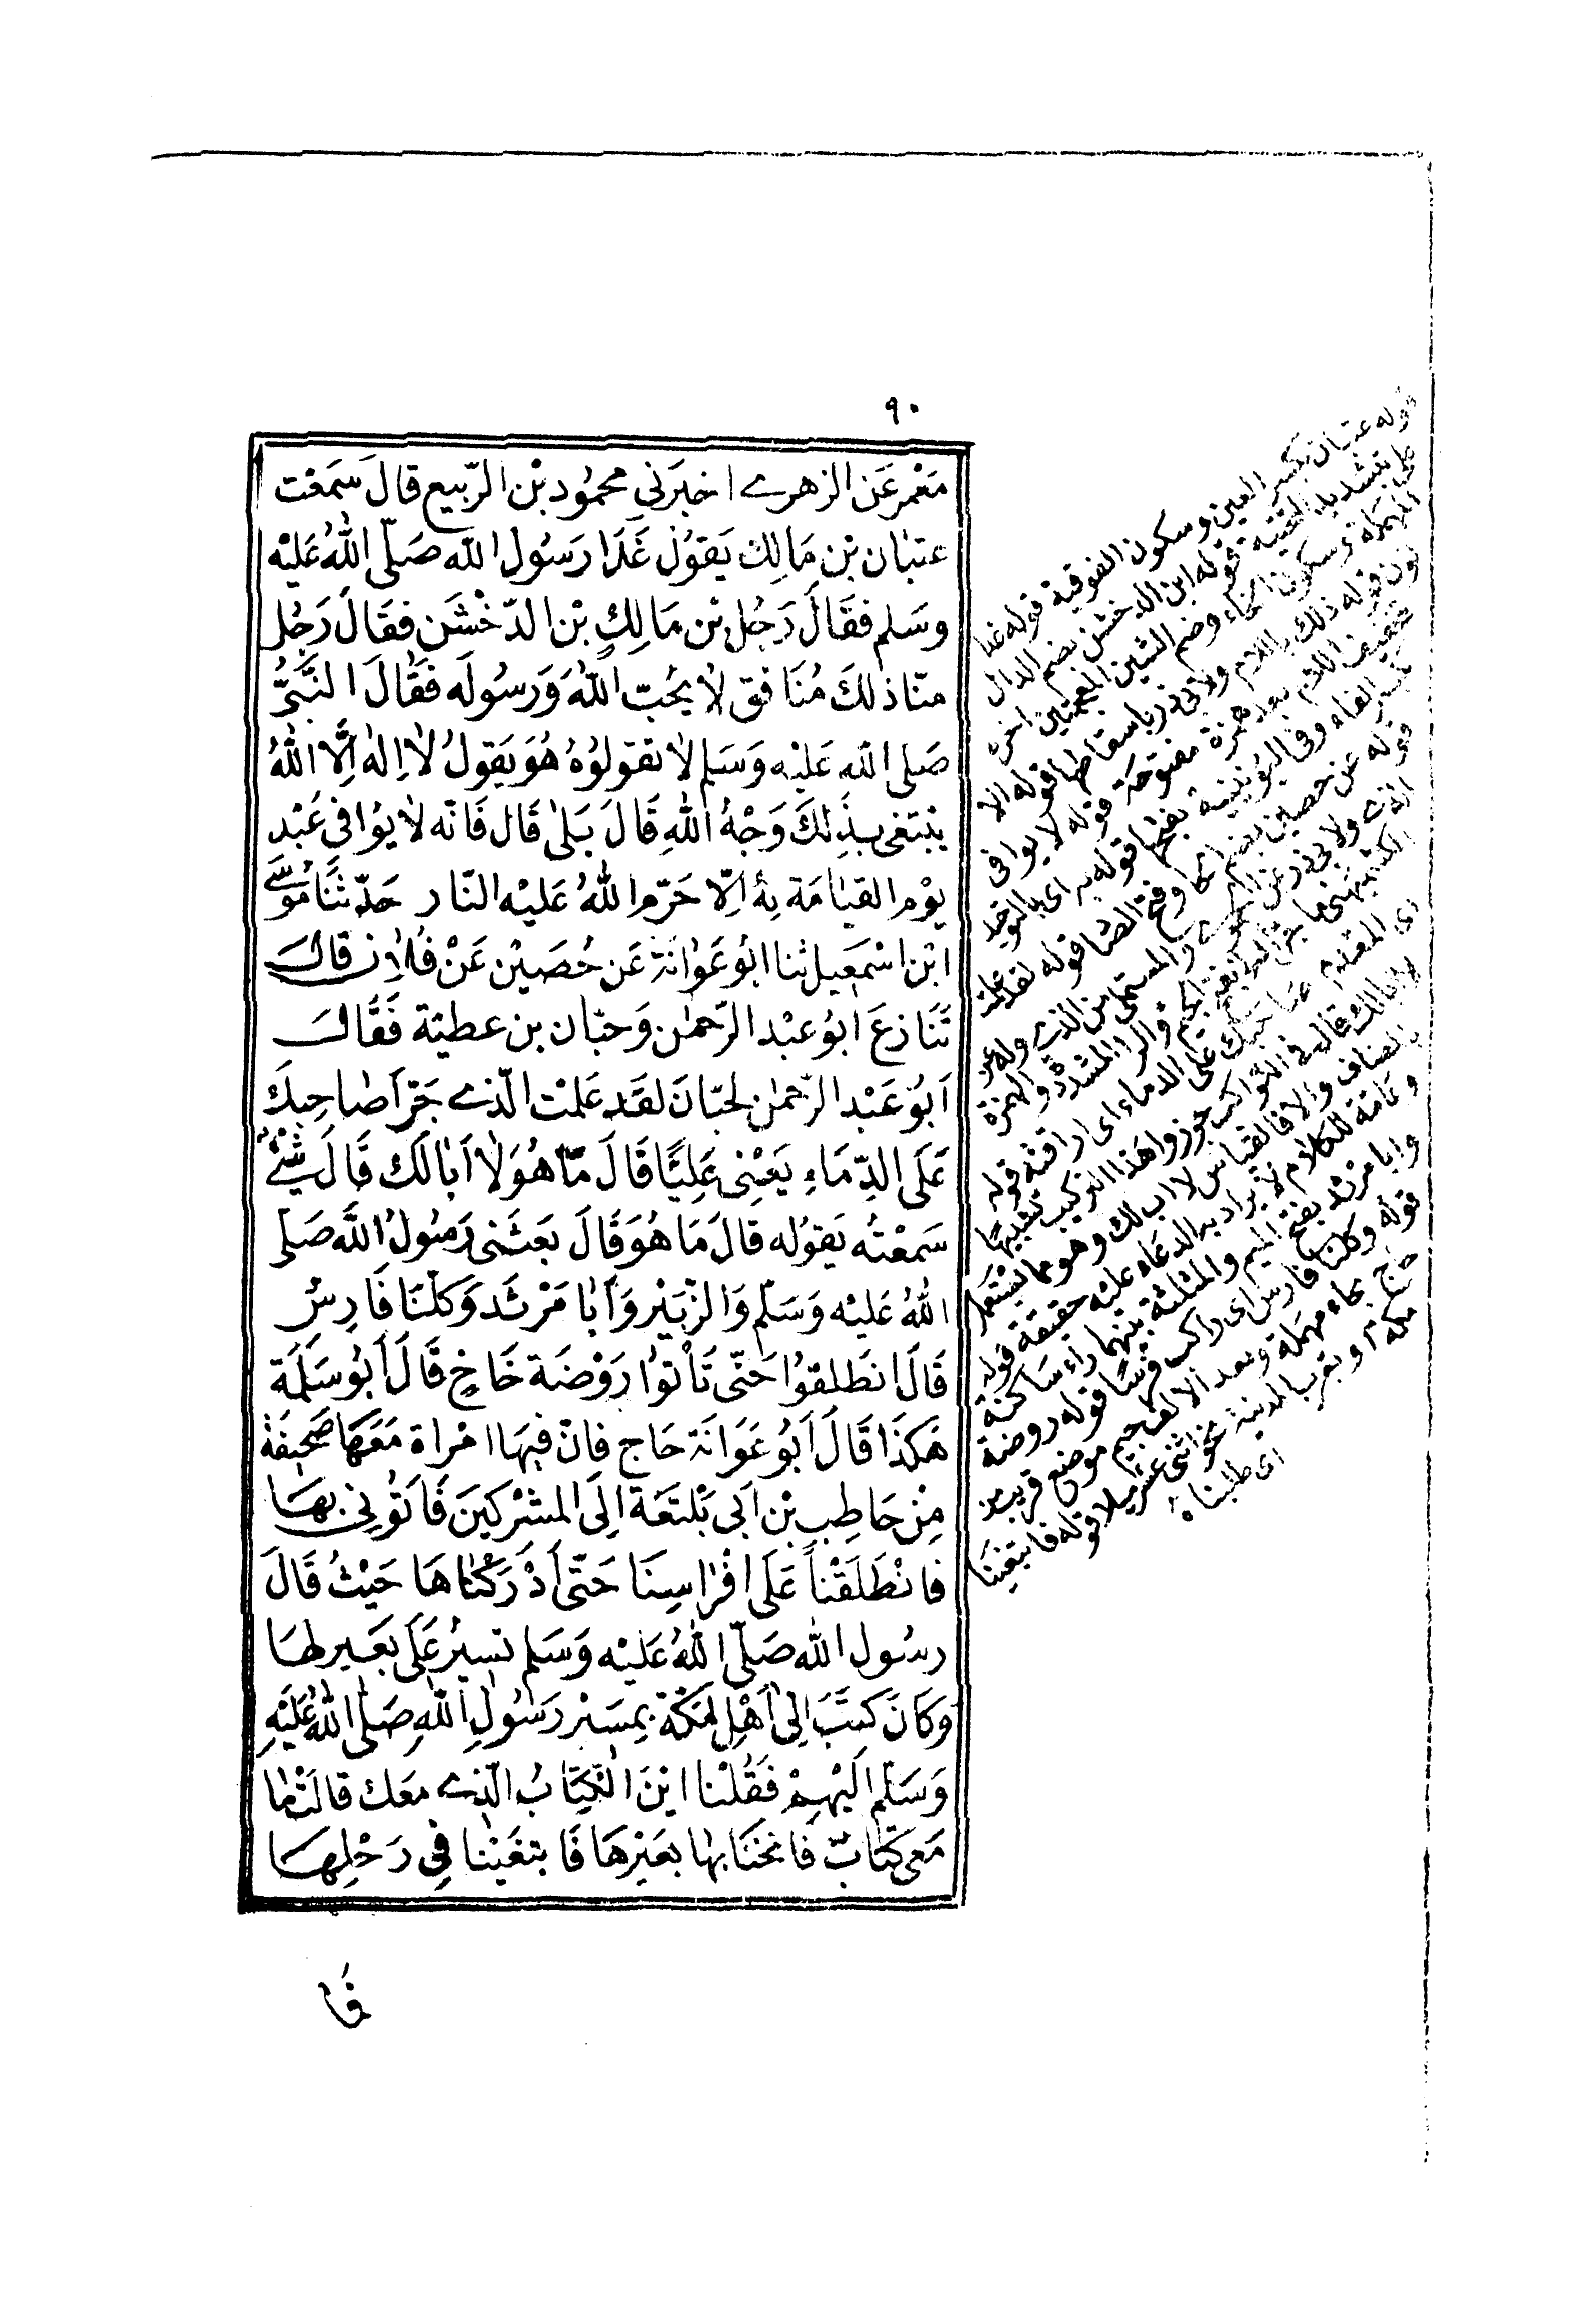 ٩٠
مَعْمر عَن الزهرے اخبَرَني محمُود بْن الرّبيع قالَ سَمَعْت
عتبٰان بْن مَالِك يَقوُل غَدَا رَسُول الله صَلّى اللهُ عَليْه
وسَلم فقَالَ رَجُل بْن مَالِكٍ بْن الدّخْشَن فقَالَ رَجُل
منّا ذلكَ مُنَافق لٰا يحُبّ اللهَ وَرَسُولَه فَقَالَ النَّبيُّ
صَلى الله عَليْه وَسَلم لاٰ تقولوُهُ هُوَ يَقولُ لاٰ اِلٰه اِلَّا اللهُ
يبْتغى بذِلكَ وَجْهُ اللهِ قَالَ بَلىٰ قَال فَانّه لاٰ يوُافى عَبْد
يوْم القيٰامَة بِهٔ اِلّا حَرّم اللهُ عَليْه النّار حَدّثنَا مُوسَے
ابْن اسْمَعِيل ثنا ابُو عَوٰانَة عَن حُصَيْن عَنْ فُلاٰن قالَ
تَنَازعَ ابوُ عبْد الرّحمٰن وَحبّان بن عطيّة فَقَالَ
اَبوُ عَبْد الرّحمٰن لحبّانَ لقَد عَلمْت الّذے جَرّأ صَاحِبكَ
عَلَى الدِّمَاءِ يَعْنِى عَلِيًّا قَالَ مَا هُوَ لاٰ اَبٰا لَك قَالَ شَےْءٌ
سَمعْتُه يَقوُله قالَ مَا هُوَ قَالَ بَعثَنى رَسُولُ اللَّه صَلّى
اللهُ عَليْه وَسَلّم وَالزّبَيْر وَأبٰا مَرْثَد وَكلّنَا فَارِسٌ
قَالَ انطَلقوُا حَتّى تَأتوُا رَوْضَة خَاخٍ قَالَ اَبُو سَلَمَة
هٰكذَا قَالَ اَبُو عَوَانَة حَاج فانّ فيهَا امْراة مَعَهَا صَحيفَة
مِنْ حَاطِبِ بْن اَبى بَلْتعَة اِلَى المشرْكينَ فَاتوُني بهَا
فانْطَلَقْنَا عَلَى افْرٰاسِنَا حَتّى اَدْرَكْنٰاهَا حَيْثُ قَالَ
رسُول الله صَلّى اللهُ عَليْه وَسَلم تسيرُ عَلَى بعَير لهَا
وَكَانَ كتَبَ اِلىٰ اَهْلِ مَكّة بِمسَيْر رَسُولِ اللهِ صَلى اللهُ عَليْهِ
وَسَلّم اِليْهمْ فَقُلْنا ايْنَ الْكِتَابُ الّذے مَعَك قالَتْ مٰا
مَعى كتَابٌ فَانخنَا بهٰا بعَيْرهَا فَابتغَيْنا فِي رَحْلِهَا
فَا
قوله عتبان بكسر العين وسكون الفوقية قوله غدا
على بتشديد التحتية قوله ابن الدخشن بضم الدال
المهملة وسكون الخاء وضم الشين المعجمتين اخره
نون قوله ذلك باللام ولابى ذر باسقاطها قوله الا
بتخفيف اللام بعد همزة مفتوحة قوله لا يوافى
بكسر الفاء وفى اليونينية بفتحها قوله به اى بالتوحيد
قوله عن حصين بضم الحا وفتح الصا قوله لقد علمت
الذے ولابى ذر عن الحموے والمستملى من الذے
على الدماء اى اراقته قوله
جوزوا هذا التركيب تشبيها
بالمضاف والا فالقياس لا اب لك وهو مما يستعمل
دعامة للكلام لا يراد به الدعاء عليه حقيقة قوله
وابا مرثد بفتح الميم والمثلثة بينهما راء ساكنة
قوله وكلنا فارس اى راكب فرسا قوله روضة
حاج بحاء مهملة وبعد الالف جيم موضع قريب من
مكة او بقرب المدينة نحو اثنى عشر ميلا قوله فابتغينا
اى طلبناه